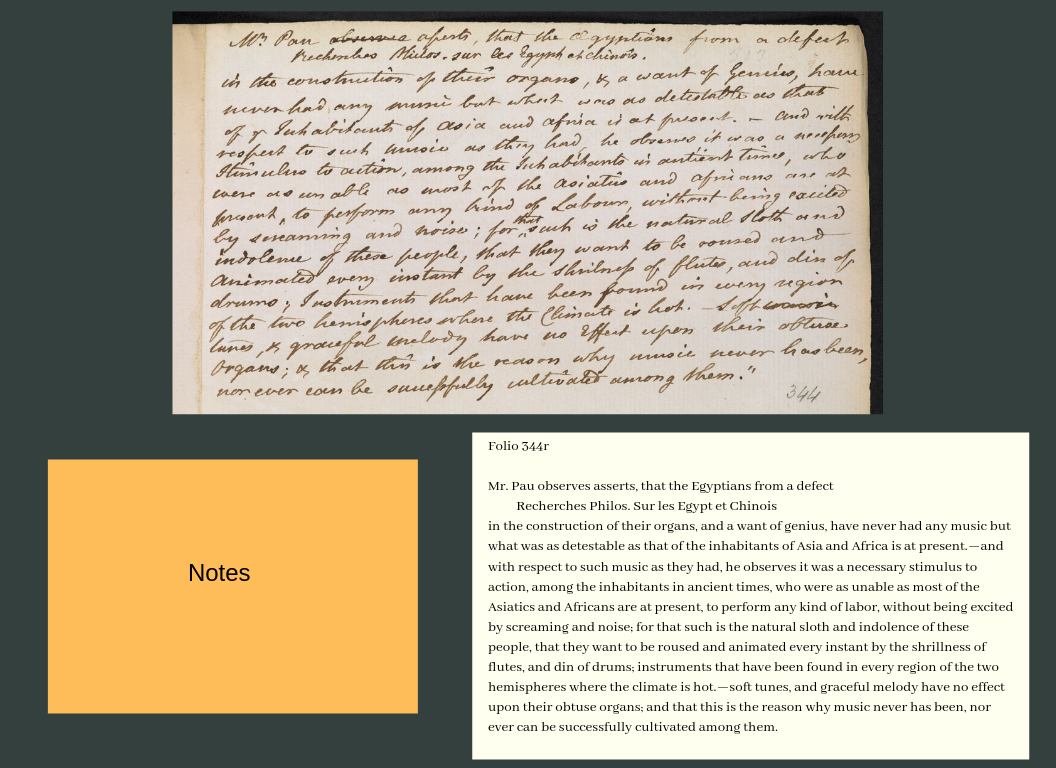 Mr Pau observes aperts, that the Ægyptians from a defect
Recherches Philos. sur les Egypt et chinois.
in the construction of their organs, & a want of Genius, have
never had any music but what was as detestable as that
of ye Inhabitants of Asia and Africa is at present. — and with
respect to such music as they had, he observes it was a necessary
Stimulus to action, among the Inhabitants in antient times, who
were as unable as most of the Asiatics and Africans are at
present, to perform any kind of Labour, without being excited
by screaming and noise; for that such is the natural Sloth and
indolence of these people, that they want to be roused and
animated every instant by the shrilness of flutes, and din of
drums; Instruments that have been found in every region
of the two hemispheres where the Climate is hot. — Soft
tunes, & graceful melody have no Effect upon their obtuse
Organs; & that this is the reason why music never has been,
nor ever can be successfully cultivated among them."
344
Notes
Folio 344r
Mr. Pau observes asserts, that the Egyptians from a defect
Recherches Philos. Sur les Egypt et Chinois
in the construction of their organs, and a want of genius, have never had any music but
what was as detestable as that of the inhabitants of Asia and Africa is at present.—and
with respect to such music as they had, he observes it was a necessary stimulus to
action, among the inhabitants in ancient times, who were as unable as most of the
Asiatics and Africans are at present, to perform any kind of labor, without being excited
by screaming and noise; for that such is the natural sloth and indolence of these
people, that they want to be roused and animated every instant by the shrillness of
flutes, and din of drums; instruments that have been found in every region of the two
hemispheres where the climate is hot.—soft tunes, and graceful melody have no effect
upon their obtuse organs; and that this is the reason why music never has been, nor
ever can be successfully cultivated among them.